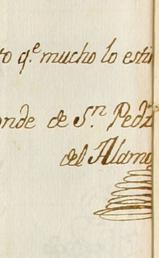 to q.e mucho lo esti
onde de S.n Pedr
del Alamo